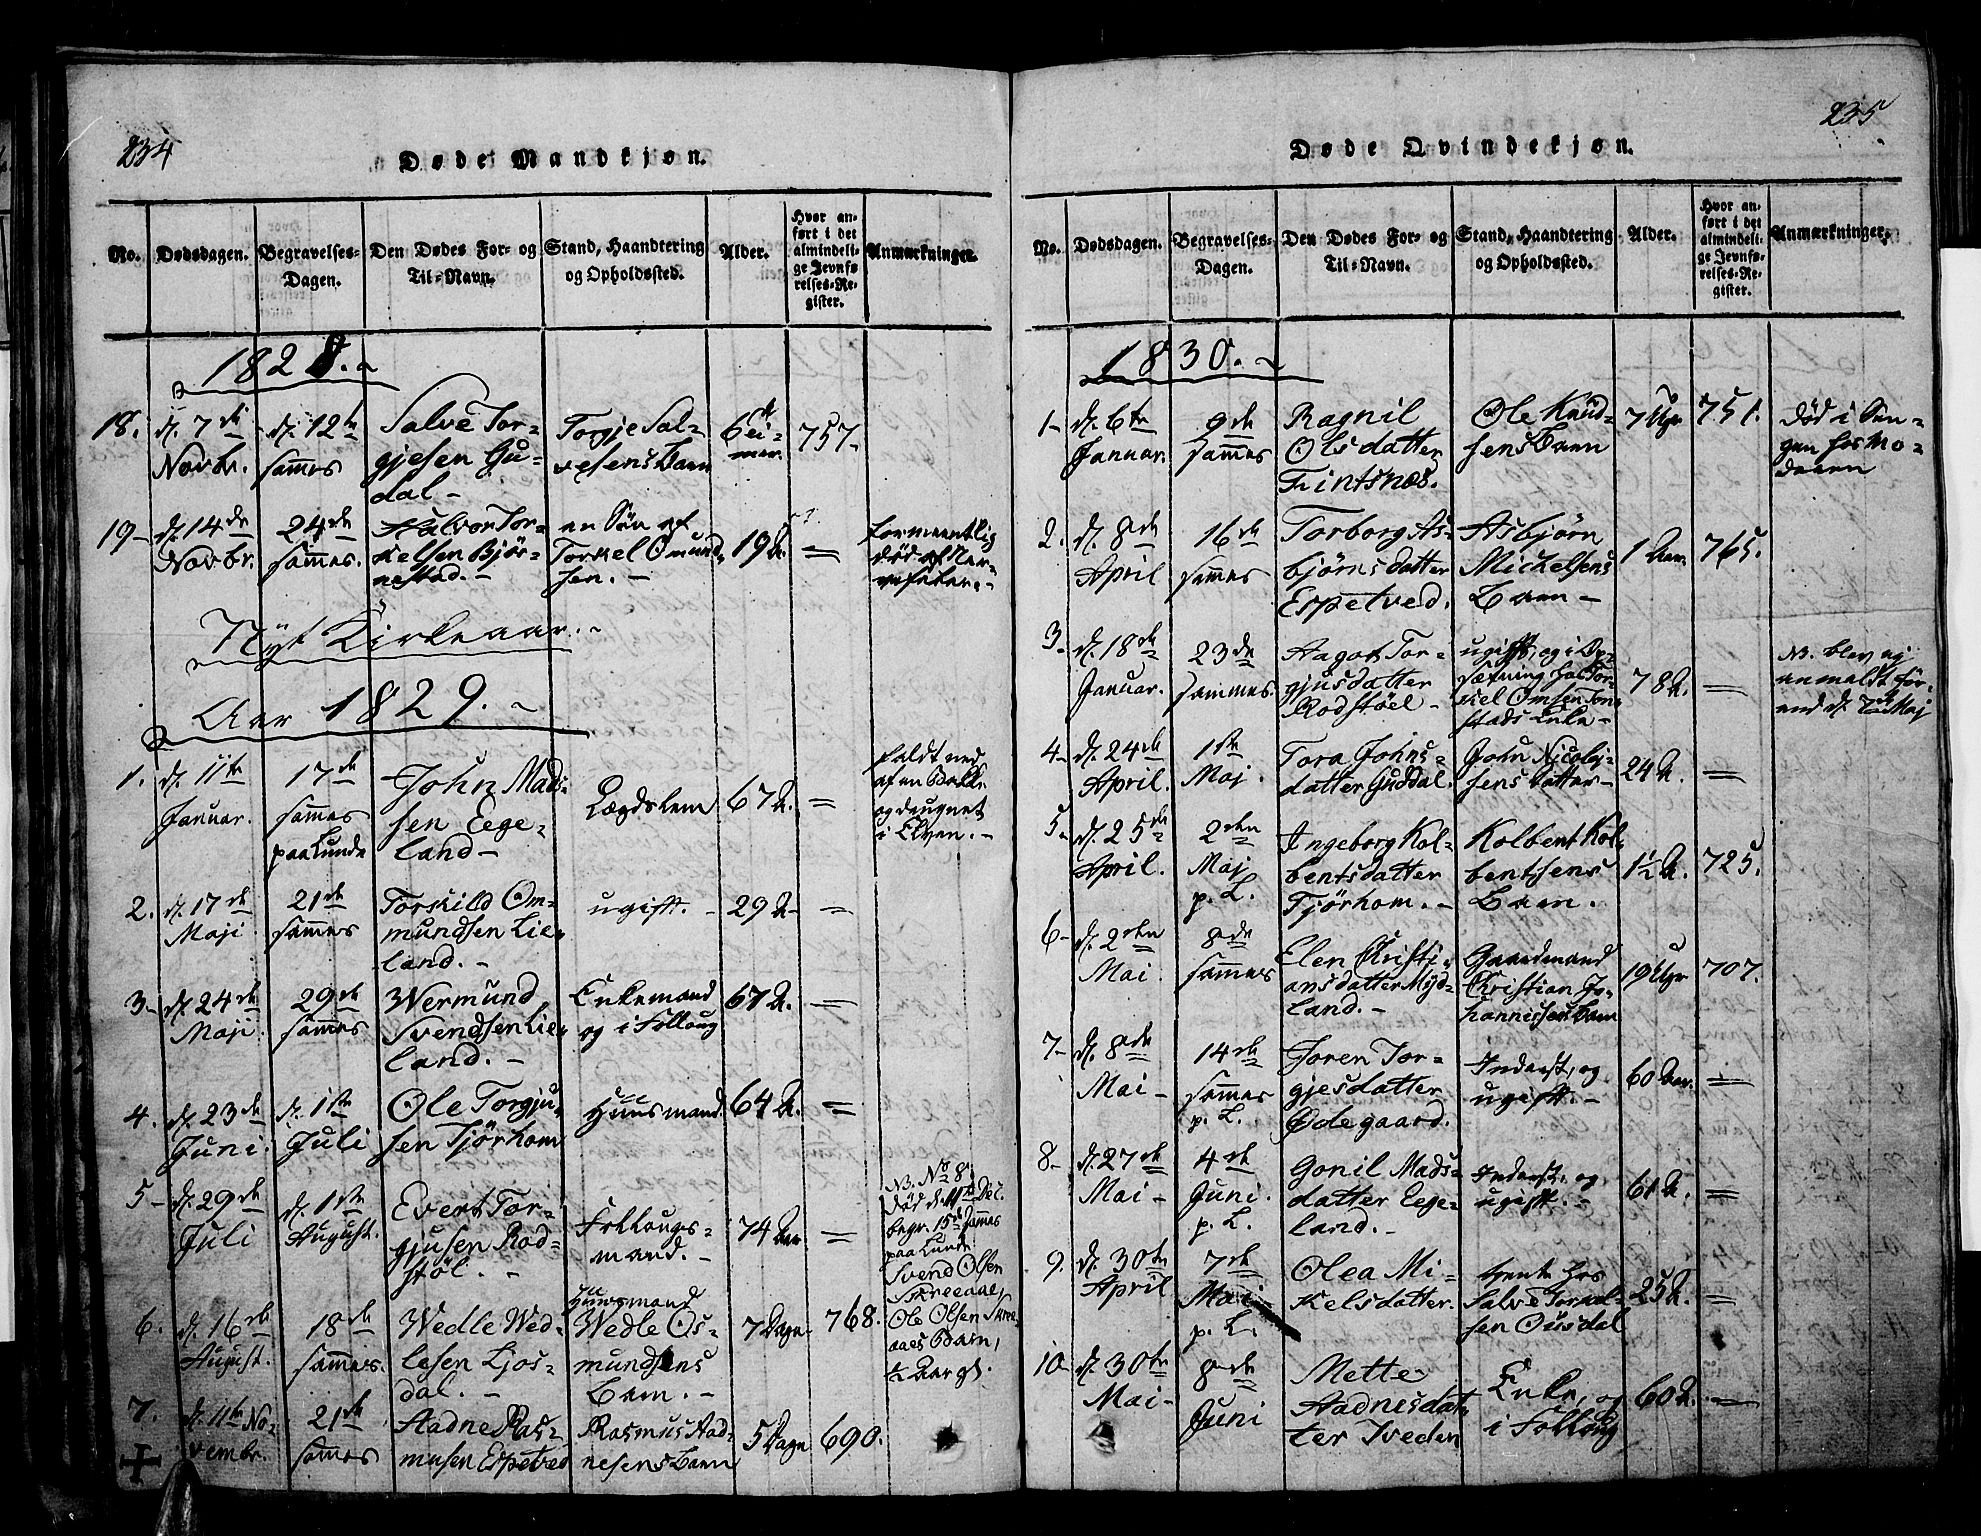 234
Døde Mandkjøn.
No.
Dødsdagen.
Begravelses-
Dagen.
Den Dødes For- og
Til-Navn.
Stand, Haandtering
og Opholdssted.
Alder.
Hvor an-
ført i det
almindeli-
ge Jevnfø-
relses-Re-
gister.
Anmærkninger.
1828.
18.
d. 7de
Novbr.
d. 12te
sammes
Salve Tor-
gjesen Gu-
dal -
Torgje Sal-
vesens Barn
757.
19 -
d. 14de
Novbr.
24de
sammes.
Halvor Tor-
kelsen Bjør-
nestad. -
en Søn af
Torkel Omund-
sen. -
19 A.
=
formeentlig
død af Ner-
vefeber. -
Nyt Kirkeaar.
Aar 1829.
1.
d. 11te
Januar.
17de
sammes
paa Lunde
John Mad-
sen Ege-
land -
Lægdslem
67 A.
=
faldt ned
af en Bakke
og druknet
i Elven. -
2.
d. 17de
Maji
21de
sammes
Torkild Om-
mundsen Lie-
land. -
ugift. -
29 A -
=
3 -
d. 24de
Maji.
29de
sammes
Wermund
Svendsen Lie-
land. -
Enkemand
og i Follaug
67 A.
=
4.
d. 23de
Juni.
d. 1ste
Juli
Ole Torgju-
sen Tjørhom
Huusmand.
64 A.
=
5 -
d. 29de
Juli
d. 1ste
August.
Evert Tor-
gjusen Rod-
støl. -
Follougs-
mand. -
74 Aar
=
NB. No 8
Død d. 11te Dec.
begr. 15de sammes
paa Lunde.
Svend Olsen
Skreeaae,
Ole Olsen Skree-
aaes Barn,
½ Aar gl.
6.
d. 16de
August.
18de
sammes.
Wedle Wed-
lesen Ljos-
dal. -
Huusmand
Wedle Os-
mundsens
Barn. -
7 Dage
768.
7.
d. 11te No-
vembr.
21de
sammes
Aadne Ras-
musen Espetved
Rasmus Aad-
nesens Barn
5 Dage
690.
235
Døde Qvindekjøn.
No.
Dødsdagen.
Begravelses-
Dagen.
Den Dødes For- og
Til-Navn.
Stand, Haandtering
og Opholdssted.
Alder.
Hvor an-
ført i det
almindeli-
ge Jevnfø-
relses-Re-
gister.
Anmærkninger.
1830.
1 -
d. 6te
Januar.
9de
sammes
Ragnil
Olsdatter
Fintsnes.
Ole Knud-
sens Barn
7 Uger
751.
død i Sen-
gen hos Mo-
deren
2.
d. 8de
April
16de
sammes
Torborg As-
bjørnsdatter
Espetved.
Asbjørn
Michelsens
Barn -
1 Aar.
765.
3 -
d. 18de
Januar.
23de
sammes.
Aagot Tor-
gjusdatter
Rodstøel -
ugift, og i For-
sørgning hos Tor-
kel Omsen Ton-
stads Enke -
78 A.
=
NB. blev ej
anmeldt før-
end d. Maj
4 -
d. 24de
April.
1ste
Maj.
Tora Johns-
datter Guddal.
John Nicolaj-
sens datter -
24 A.
=
5 -
d. 25de
April.
2den
Maj
p. L.
Ingeborg Kol-
bentsdatter
Tjørhom. -
Kolbent Kol-
bentsens
Barn.
1½ A.
725.
6 -
d. 2den
Mai.
8de
sammes
Elen Christi-
ansdatter Myd-
land. -
Gaardmand
Christian Jo-
hannissens Barn
19 Uger
707.
7 -
d. 8de
Mai -
14de
sammes
p. L.
Joren Tor-
gjesdatter
Ødegaard.
Inderst, og
ugift. -
60 Aar.
=
8 -
d. 27de
Mai -
4de
Juni.
p. L.
Gonil Mads-
datter Eege-
land. -
Inderst, og
ugift. -
61 A.
=
9.
d. 30te
April
7de
Mai -
p. L.
Olea Mi-
kelsdatter.
tjente hos
Salve Torkel-
sen Ousdal
25 A.
=
10 -
d. 30te
Mai -
8de
Juni
Mette
Aadnesdat-
ter Tveden
Enke, og
i Follaug
60 A.
=